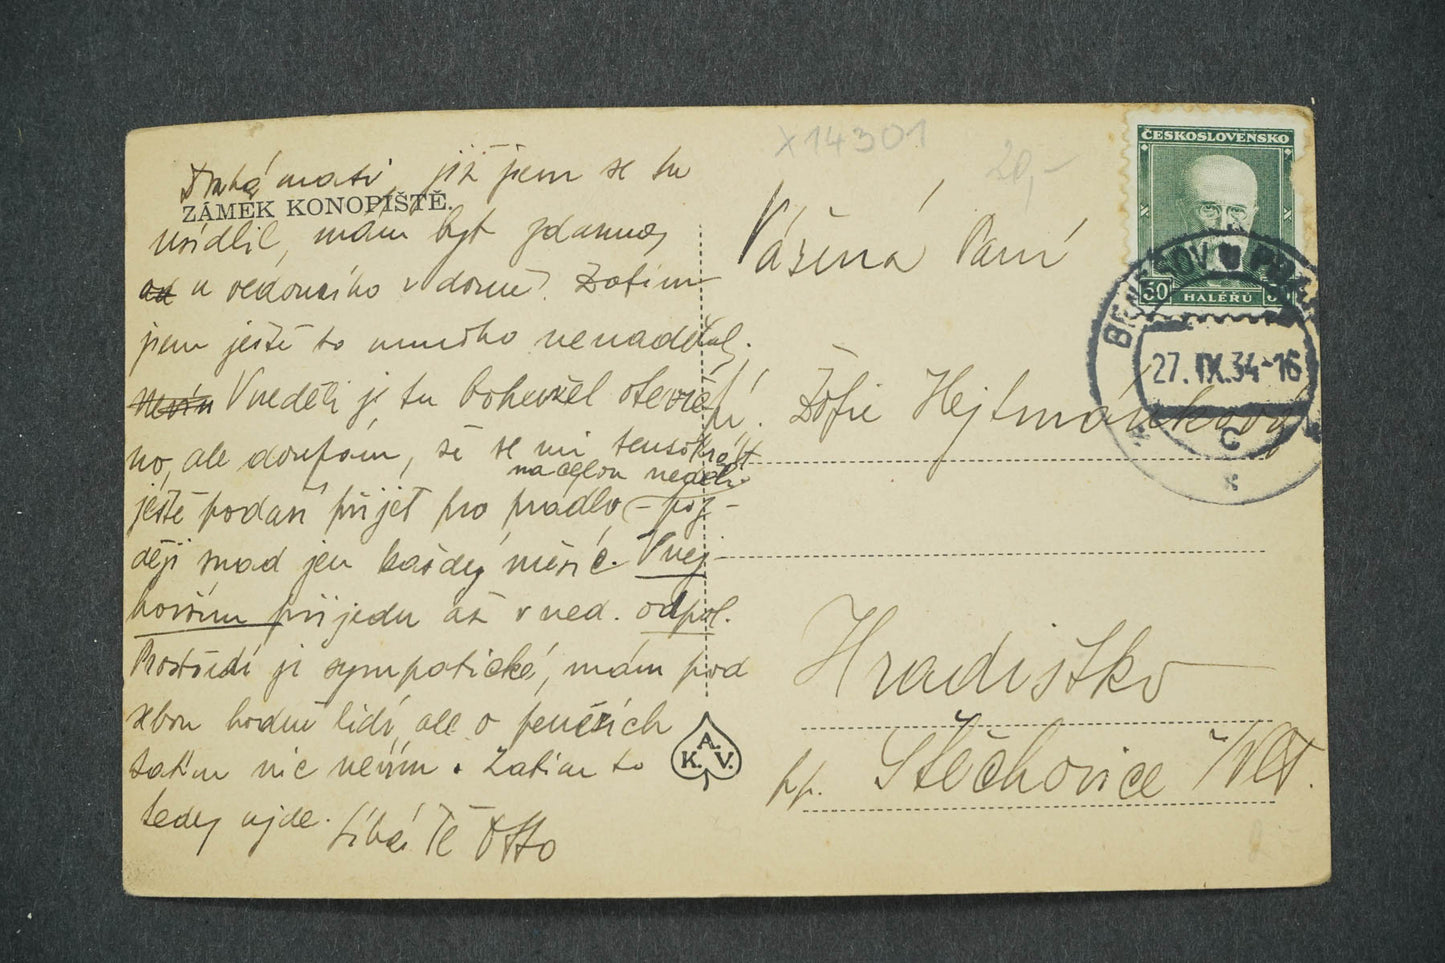 X14301
20,-
ČESKOSLOVENSKO
50 HALÉŘŮ
BENEŠOV U
27.IX.34-16
C
ZÁMEK KONOPIŠTĚ.
Drahá mati, již jsem se tu
usídlil, mám byt zdarma,
u v domě. Zatím
jsem ještě to mnoho nenadělal,
V neděli je tu bohužel otevře-
no, ale doufám, že se mi tentokrát
na celou neděli
ještě podaří přijet pro prádlo, – poz-
ději snad jen každý měsíc. V nej-
horším přijedu až v ned. odpol.
Prostředí je sympatické, mám pod
sebou hodně lidí, ale o penězích
zatím nic nevím. Zatím to
tedy ujde. Líbá Tě Otto
Vážená Paní
Žofie Hejtmánková
Hradištko
pp. Štěchovice n/Vlt.
K.A.V.